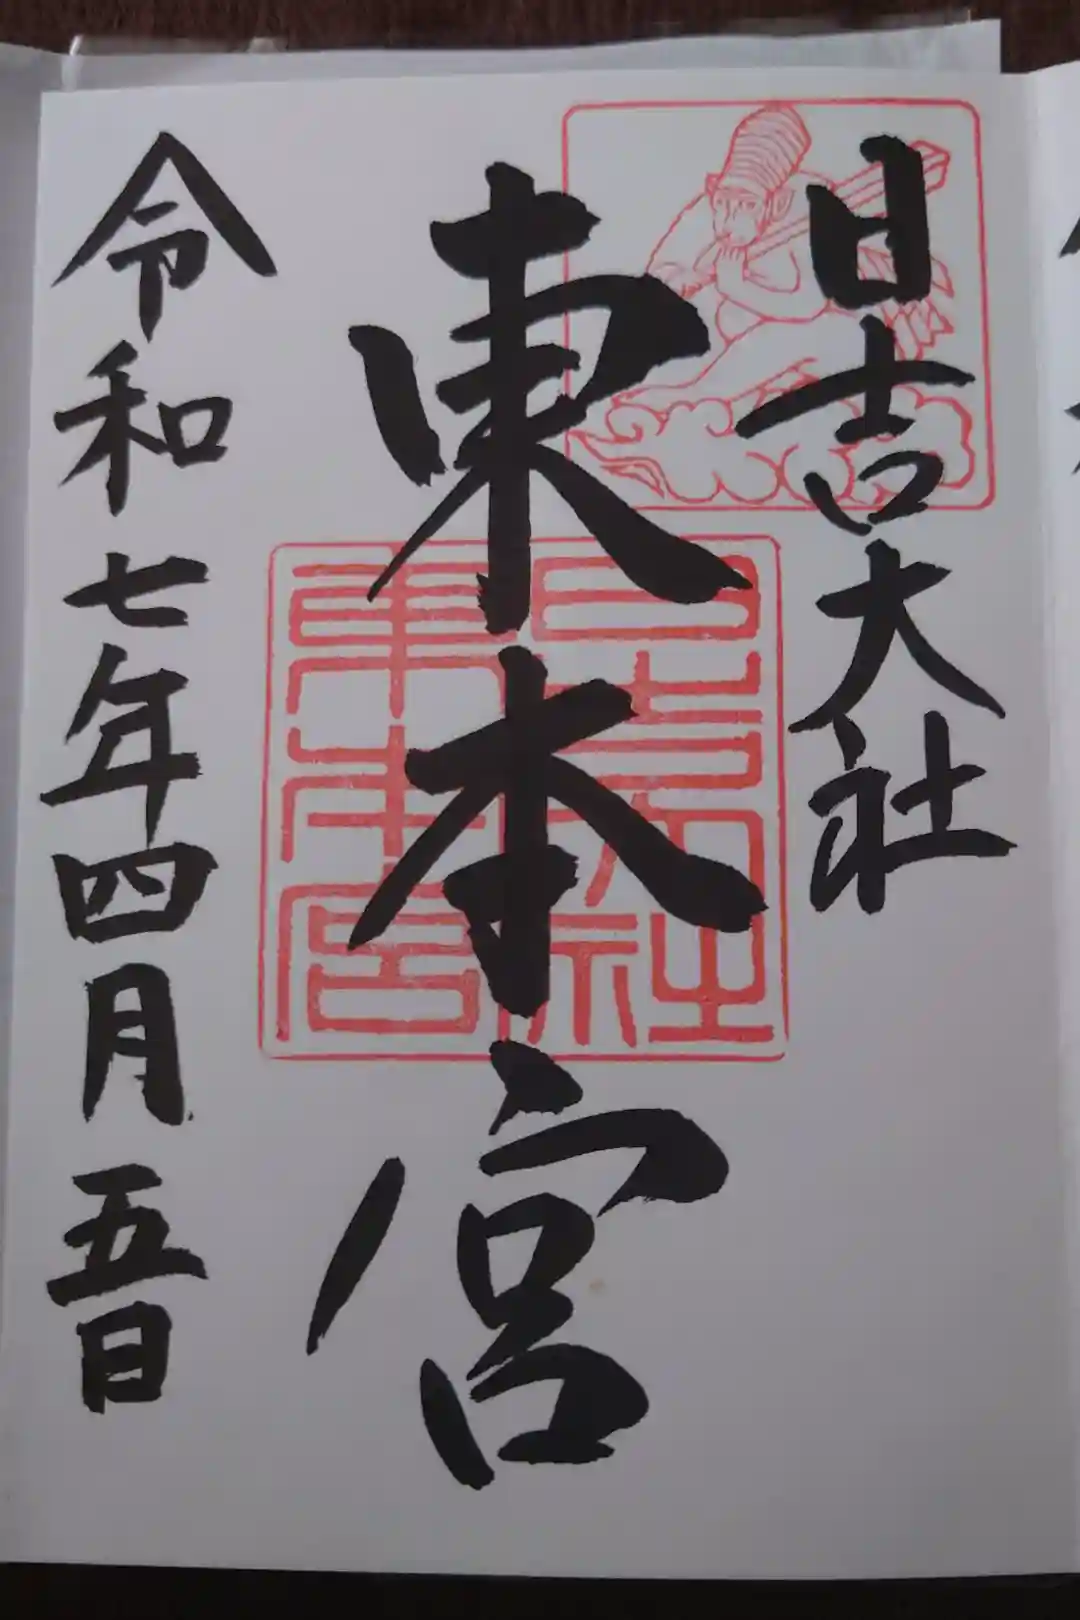 日吉大社
東本宮
令和七年四月五日
日吉大社
東本宮